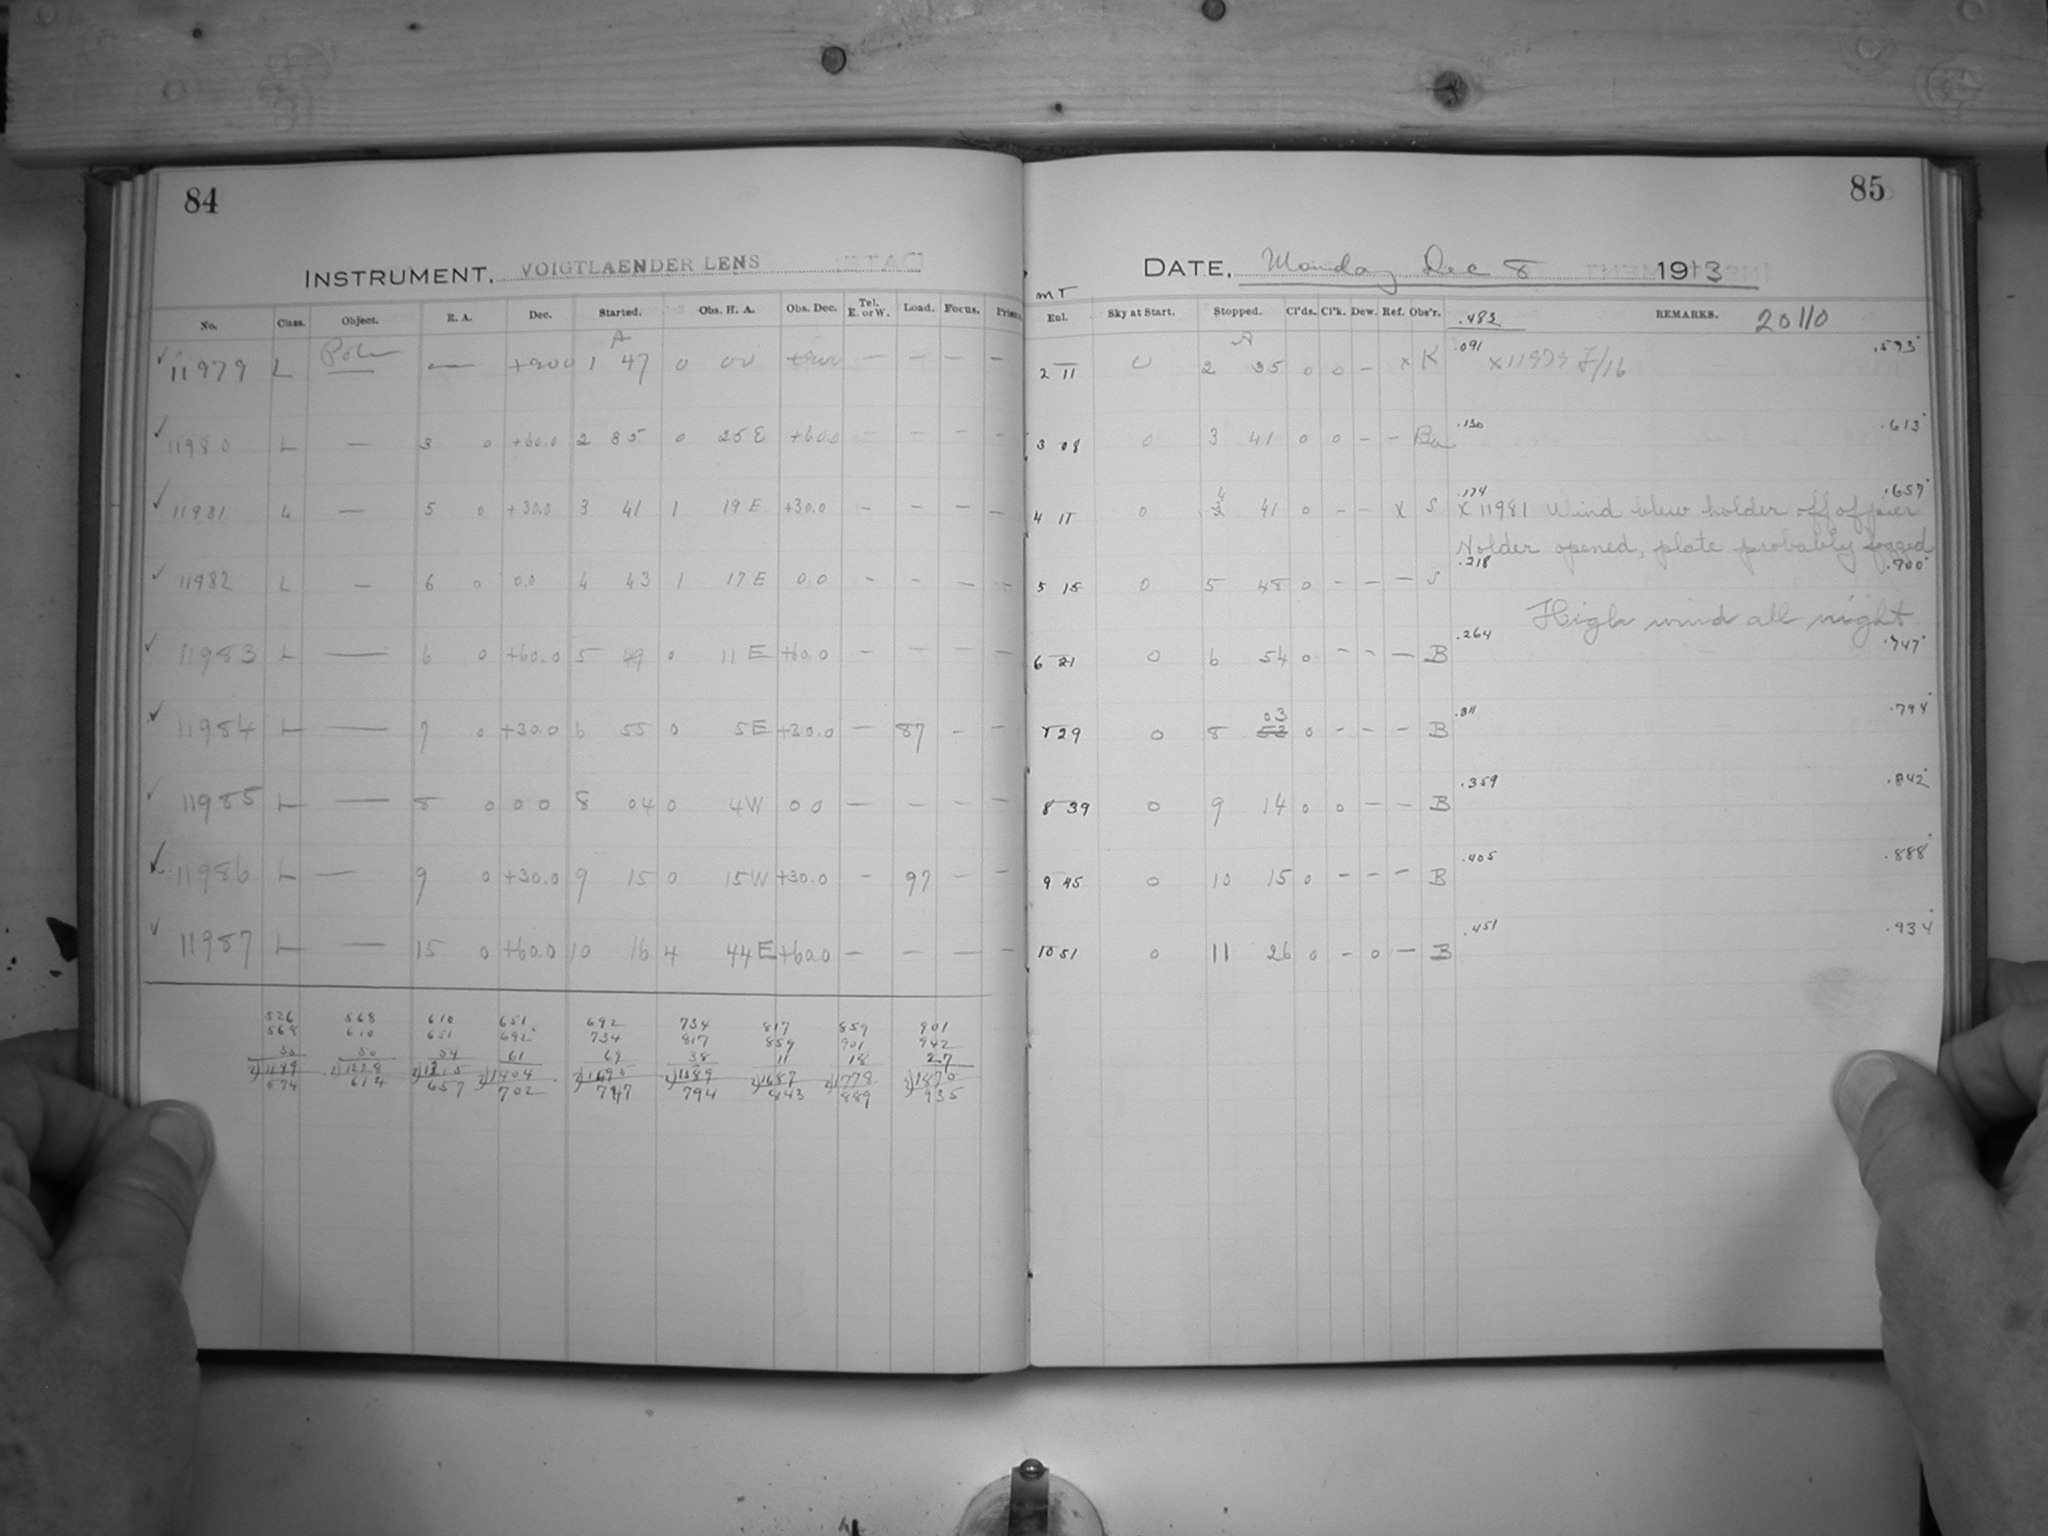 84
INSTRUMENT, VOIGTLAENDER LENS
No. Class. Object. R. A. Dec. Started. Obs. H. A. Obs. Dec. Tel. E. or W. Load. Focus.
A
11979 L Pole — +900 1 47 0 00 — — — —
11980 L — 3 0 +60.0 2 35 0 25 E +60.0 — — — —
11981 L — 5 0 +30.0 3 41 1 19 E +30.0 — — — —
11982 L — 6 0 0.0 4 43 1 17 E 0.0 — — — —
11983 L — 6 0 +60.0 5 49 0 11 E +60.0 — — — —
11984 L — 7 0 +30.0 6 55 0 5 E +30.0 — 87 — —
11985 L — 8 0 0 0 8 04 0 4 W 0 0 — — — —
11986 L — 9 0 +30.0 9 15 0 15 W +30.0 — 97 — —
11987 L — 15 0 +60.0 10 16 4 44 E +60.0 — — — —
526 568 610 651 692 734 817 859 901
568 610 651 692 734 817 859 901 942
50 54 61 69 38 11 18 27
1404 1589 1687 1778 1870
574 614 657 702 747 794 843 889 935
85
DATE, Monday Dec 8 1913
MT
Enl. Sky at Start. Stopped. Cl'ds. Cl'k. Dew. Ref. Obs'r. .483 REMARKS. 20110
A
2 11 0 2 35 0 0 — x K .091 x 11979 F/16 .573
3 08 0 3 41 0 0 — — Ba .130 .613
4 11 0 4 41 0 — — x S .174 .657
x 11981 Wind blew holder off of pier
Holder opened, plate probably fogged
5 15 0 5 48 0 — — — S .218 .700
High wind all night
6 21 0 6 54 0 — — — B .264 .747
7 29 0 8 03 53 0 — — — B .311 .794
8 39 0 9 14 0 0 — — B .359 .842
9 45 0 10 15 0 — — — B .405 .888
10 51 0 11 26 0 — 0 — B .451 .934